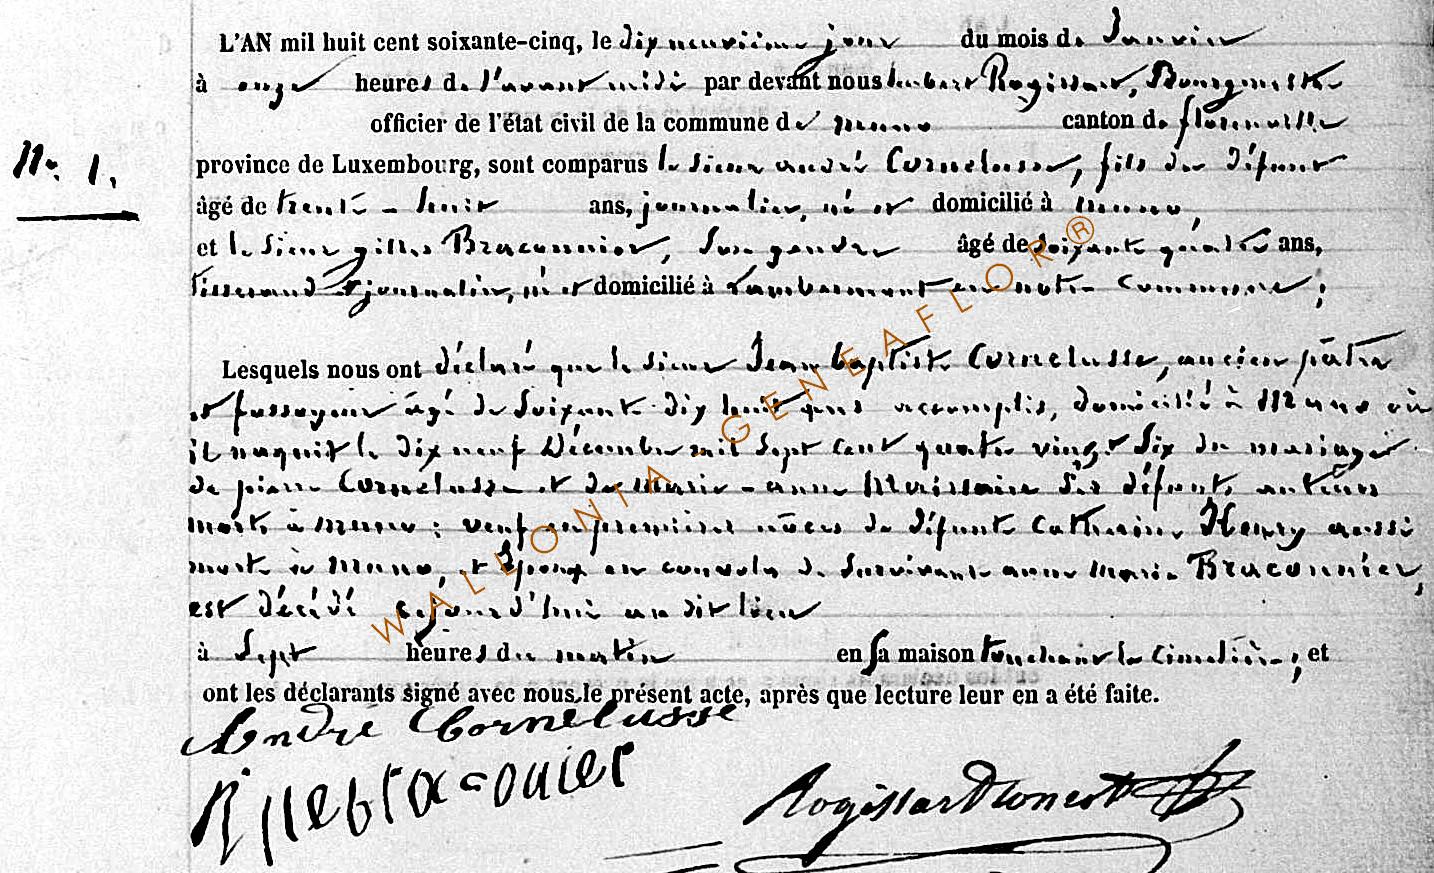 L'AN mil huit cent soixante-cinq, le dix neuvième jour du mois de Janvier
à onze heures de l'avant midi par devant nous Lambert Rogissart, Bourgmestre
officier de l'état civil de la commune de muno canton de florenville
N°. 1.
province de Luxembourg, sont comparus le sieur andré Cornelusse, fils du défunt
âgé de trente-huit ans, journalier, né et domicilié à muno,
et le sieur gilles Braconnier, son gendre âgé de soixante quatre ans,
tisserand et journalier, né et domicilié à Lambermont en notre commune ;
Lesquels nous ont déclaré que le sieur Jean baptiste Cornelusse, ancien pâtre
et fossoyeur âgé de soixante dix huit ans accomplis, domicilié à Muno où
il naquit le dix neuf Décembre mil sept cent quatre vingt six du mariage
de pierre Cornelusse et de Marie-anne Maissaire ses défunts auteurs
morts à muno ; veuf en premières nôces de défunte Catherine Henry aussi
morte à Muno, et époux en convola de survivante anne Marie Braconnier,
est décédé cejourd'hui au dit lieu
à sept heures du matin en sa maison touchant le cimetière ; et
ont les déclarants signé avec nous le présent acte, après que lecture leur en a été faite.
André Cornelusse
gillebraconier
Rogissart
WALLONIA GENEAFLOR ®